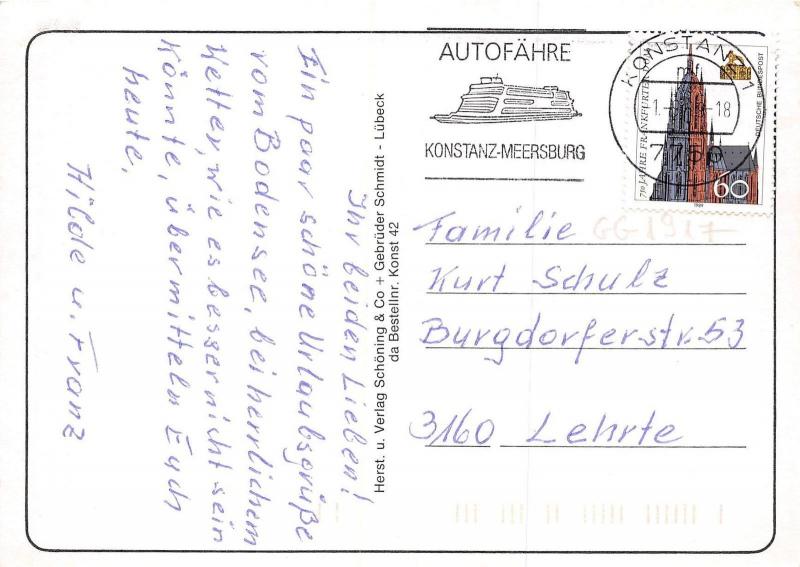 Ihr beiden Lieben!
Ein paar schöne Urlaubsgrüße
vom Bodensee, bei herrlichem
Wetter, wie es besser nicht sein
könnte, übermitteln Euch
heute,
Hilde u. Franz
Herst. u. Verlag Schöning & Co + Gebrüder Schmidt - Lübeck
da Bestellnr. Konst 42
AUTOFÄHRE
KONSTANZ-MEERSBURG
KONSTANZ 1
18
7750
DEUTSCHE BUNDESPOST
60
Familie
GG1917
Kurt Schulz
Burgdorferstr. 53
3160 Lehrte